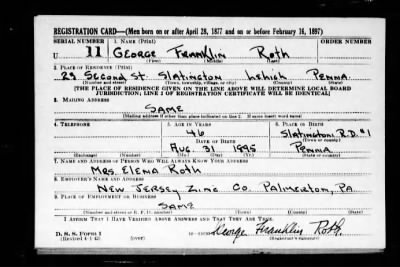 REGISTRATION CARD—(Men born on or after April 28, 1877 and on or before February 16, 1897)
SERIAL NUMBER 1. NAME (Print) ORDER NUMBER
U 11 George Franklin Roth
(First) (Middle) (Last)
2. PLACE OF RESIDENCE (Print)
29 Second St. Slatington Lehigh Penna.
(Number and street) (Town, township, village, or city) (County) (State)
[THE PLACE OF RESIDENCE GIVEN ON THE LINE ABOVE WILL DETERMINE LOCAL BOARD
JURISDICTION; LINE 2 OF REGISTRATION CERTIFICATE WILL BE IDENTICAL]
3. MAILING ADDRESS
SAME
[Mailing address if other than place indicated on line 2. If same insert word same]
4. TELEPHONE 5. AGE IN YEARS 6. PLACE OF BIRTH
46 Slatington R.D. #1
DATE OF BIRTH (Town or county)
Aug. 31 1895 Penna
(Exchange) (Number) (Mo.) (Day) (Yr.) (State or country)
7. NAME AND ADDRESS OF PERSON WHO WILL ALWAYS KNOW YOUR ADDRESS
Mrs. Elema Roth
8. EMPLOYER'S NAME AND ADDRESS
New Jersey Zinc Co. Palmerton, Pa
9. PLACE OF EMPLOYMENT OR BUSINESS
SAME
(Number and street or R. F. D. number) (Town) (County) (State)
I AFFIRM THAT I HAVE VERIFIED ABOVE ANSWERS AND THAT THEY ARE TRUE.
D. S. S. Form 1 George Franklin Roth
(Revised 4-1-42) (over) (Registrant's signature)